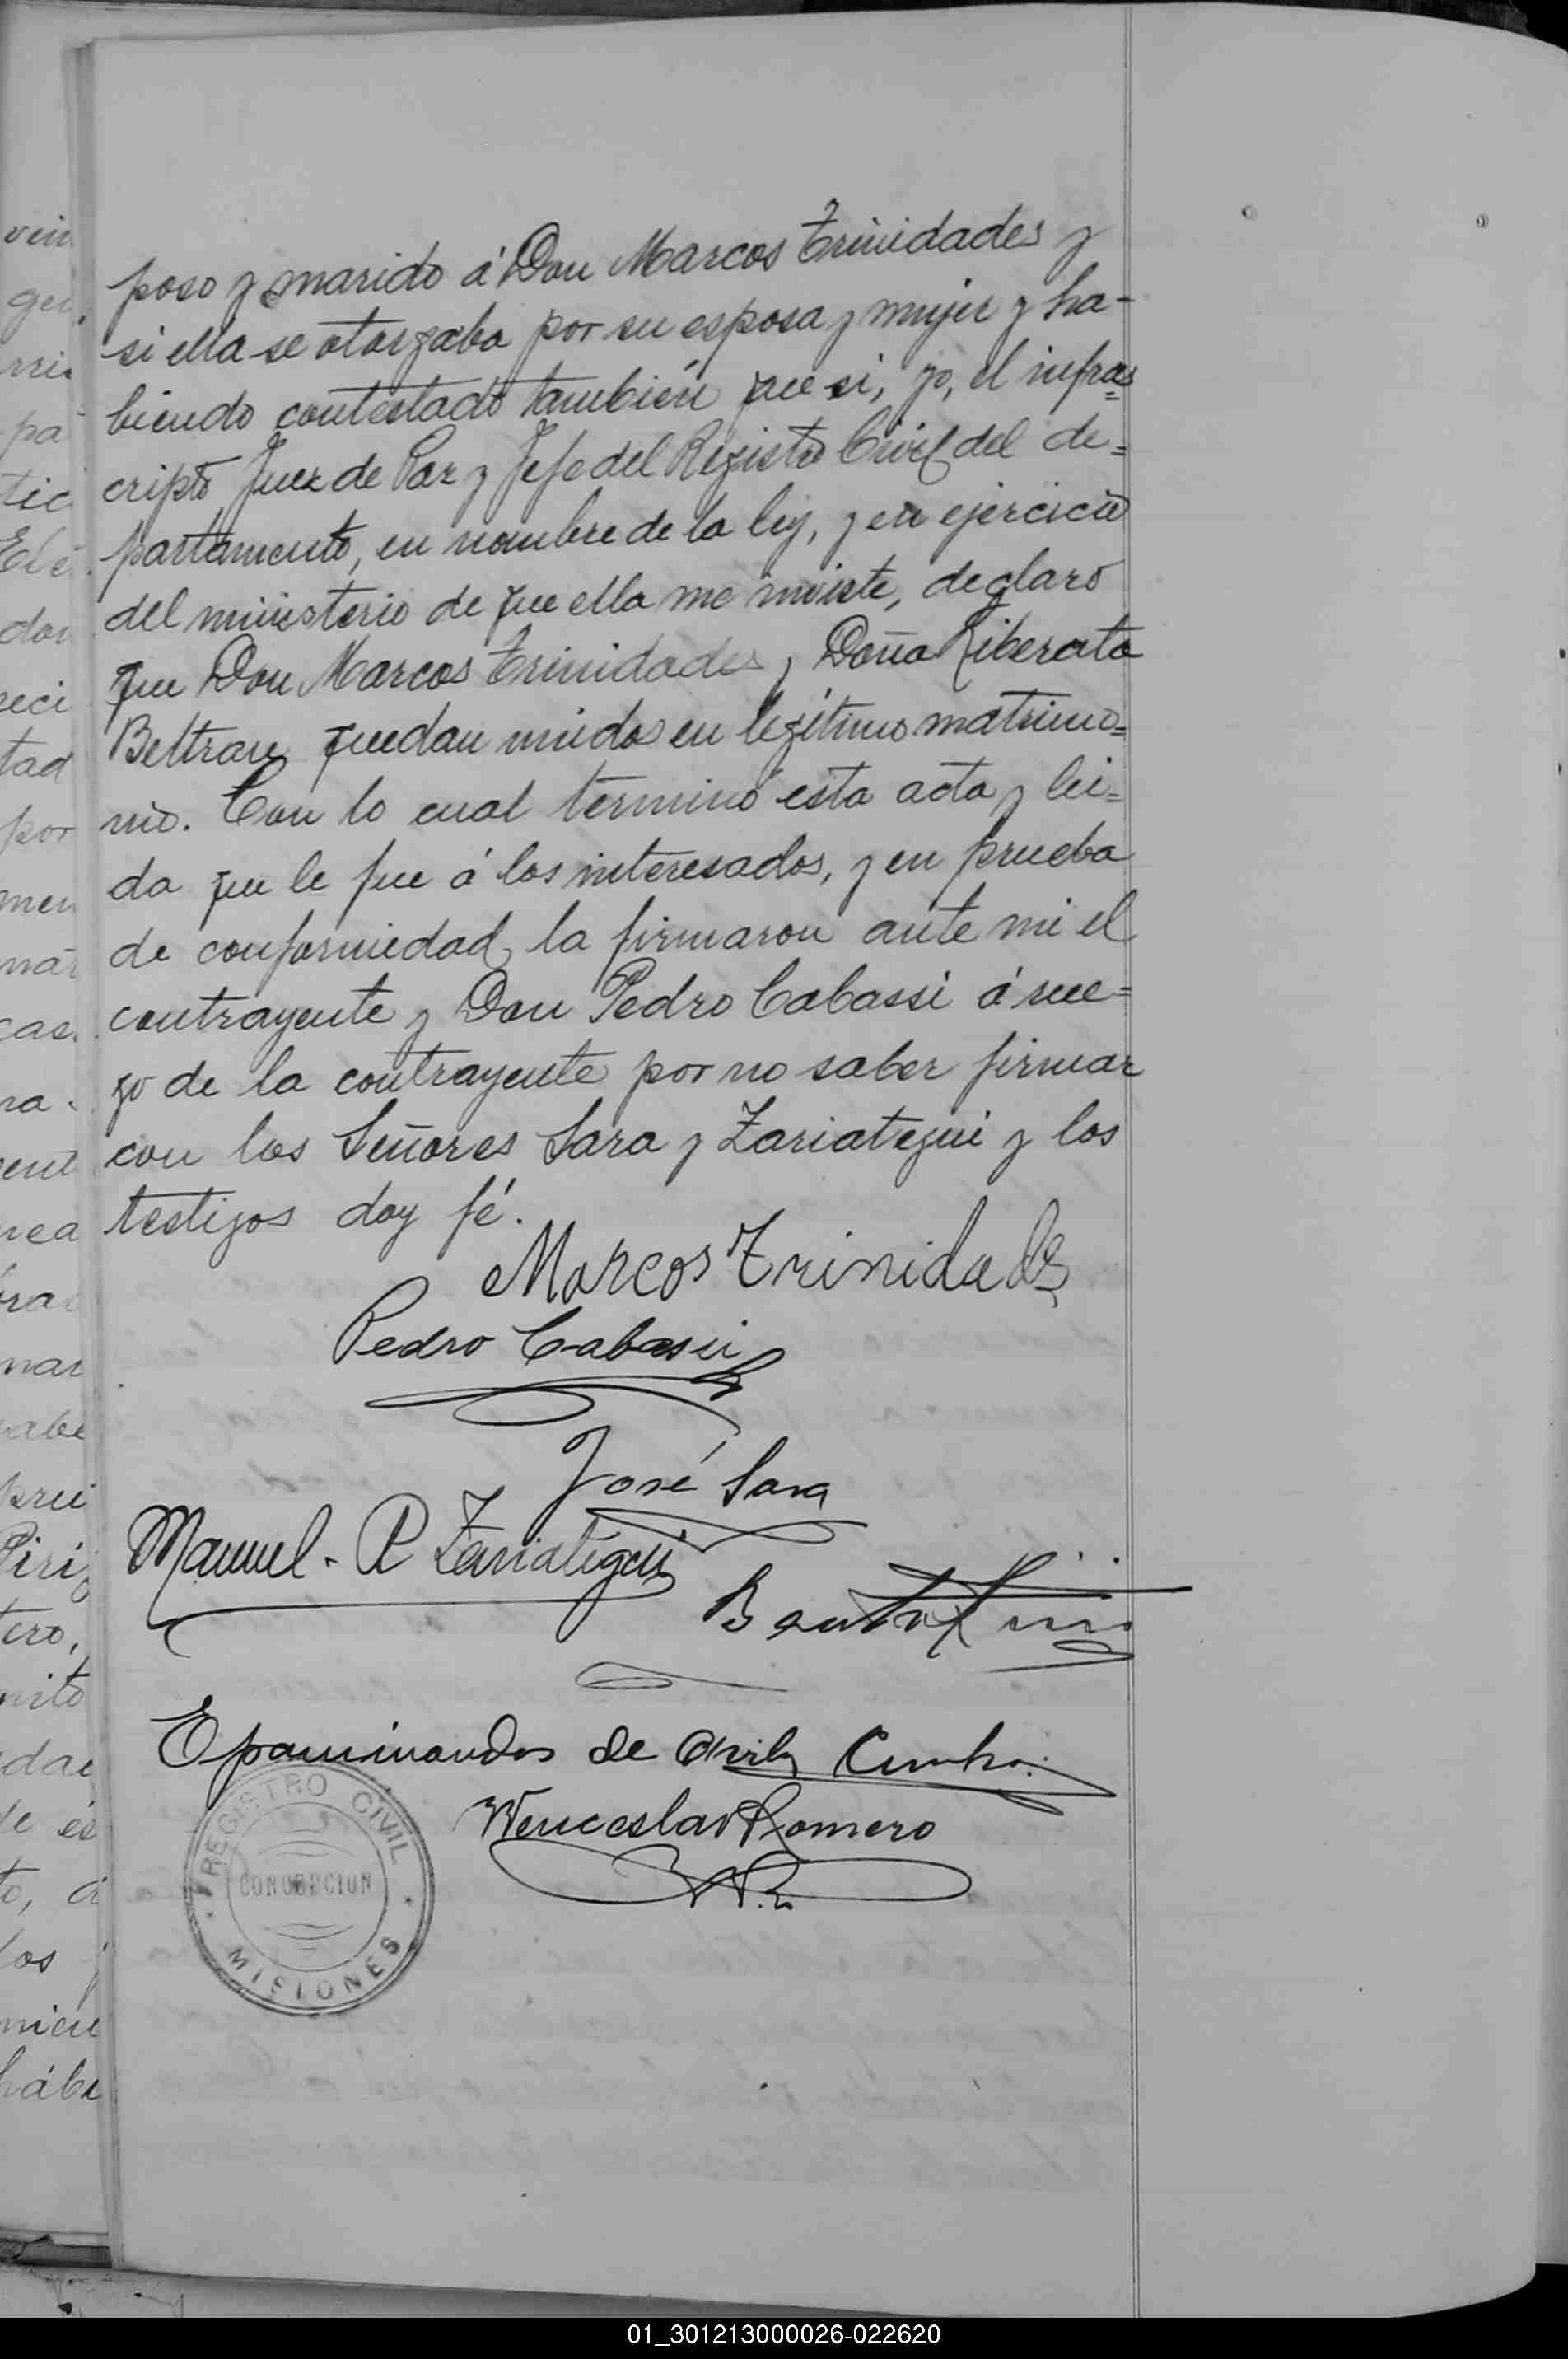 poso y marido á Don Marcos Trinidades y
si ella se otorgaba por su esposa y mujer y ha-
biendo contestado también que si, yo, el infras
cripto Juez de Paz y Jefe del Registro Civil del de=
partamento, en nombre de la ley, y en ejercicio
del ministerio de que ella me inviste, declaro
que Don Marcos Trinidades y Doña Liberata
Beltran quedan unidos en legítimo matrimo=
nio. Con lo cual terminó esta acta y lei=
da que le fue á los interesados, y en prueba
de conformidad, la firmaron ante mi el
contrayente y Don Pedro Cabassi á rue=
go de la contrayente por no saber firmar
con los Señores Sara y Zariategui y los
testigos doy fé.
Marcos Trinidades
Pedro Cabassi
José Sara
Manuel. P Zariategui
Epaminondas de Avila Cunha
Wenceslao Romero
REGISTRO CIVIL
CONCEPCION
MISIONES
01_301213000026-022620